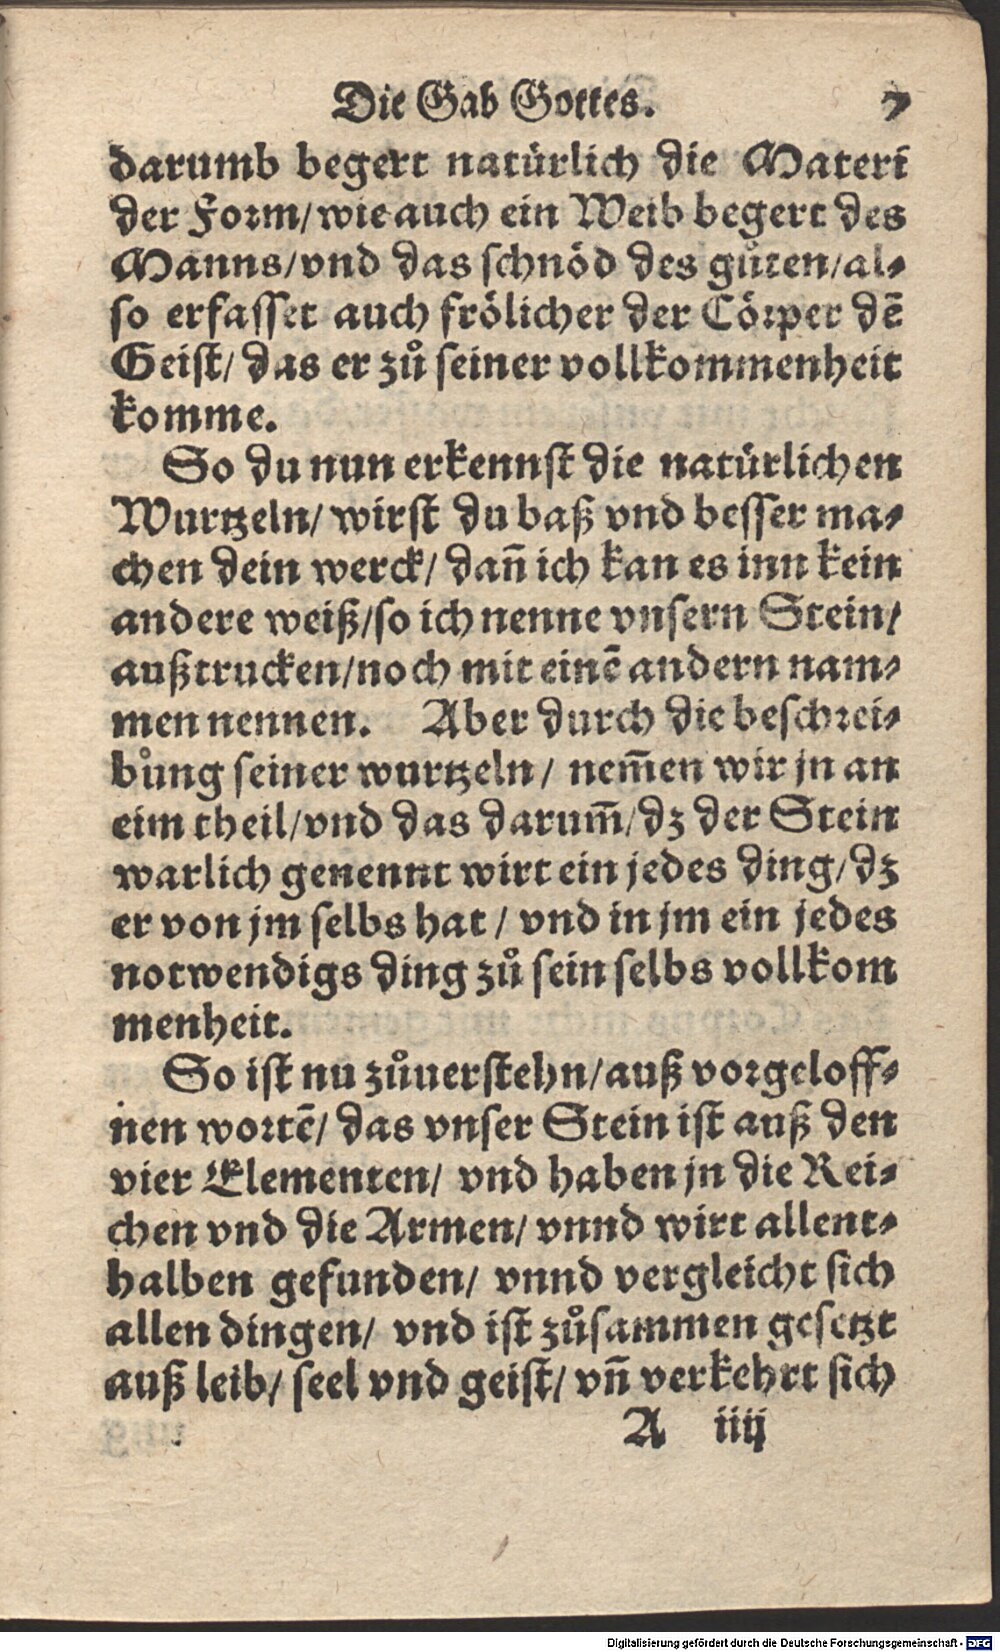 Die Gab Gottes. 7
darumb begert natürlich die Materi
der Form/wie auch ein Weib begert des
Manns/vnd das schnöd des gůten/al-
so erfasset auch frölicher der Cörper dē
Geist/ das er zů seiner vollkommenheit
komme.
So du nun erkennst die natürlichen
Wurtzeln/ wirst du baß vnd besser ma-
chen dein werck/ dañ ich kan es inn kein
andere weiß/so ich nenne vnsern Stein/
außtrucken/noch mit einē andern nam-
men nennen. Aber durch die beschrei-
bůng seiner wurtzeln/ nem̄en wir jn an
eim theil/vnd das darum̄/dz der Stein
warlich genennt wirt ein jedes ding/dz
er von jm selbs hat / vnd in jm ein jedes
notwendigs ding zů sein selbs vollkom
menheit.
So ist nu zůuerstehn/auß vorgeloff-
nen wortē/ das vnser Stein ist auß den
vier Elementen/ vnd haben jn die Rei-
chen vnd die Armen/ vnnd wirt allent-
halben gefunden/ vnnd vergleicht sich
allen dingen/ vnd ist zůsammen gesetzt
auß leib/ seel vnd geist/ vñ verkehrt sich
A iiij
Digitalisierung gefördert durch die Deutsche Forschungsgemeinschaft - DFG